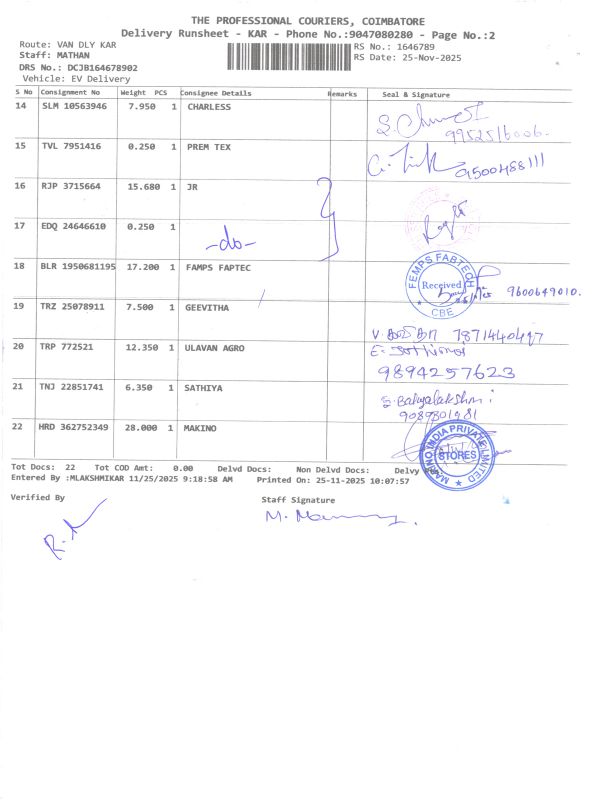 THE PROFESSIONAL COURIERS, COIMBATORE
Delivery Runsheet - KAR - Phone No.:9047080280 - Page No.:2
Route: VAN DLY KAR
RS No.: 1646789
Staff: MATHAN
RS Date: 25-Nov-2025
DRS No.: DCJB164678902
Vehicle: EV Delivery
S No Consignment No Weight PCS Consignee Details Remarks Seal & Signature
14 SLM 10563946 7.950 1 CHARLESS
9952516006-
15 TVL 7951416 0.250 1 PREM TEX
9500488111
16 RJP 3715664 15.680 1 JR
17 EDQ 24646610 0.250 1
-do-
18 BLR 1950681195 17.200 1 FAMPS FAPTEC
FEMPS FABTECH
Received
CBE
9600649010.
19 TRZ 25078911 7.500 1 GEEVITHA
7871440497
20 TRP 772521 12.350 1 ULAVAN AGRO
9894257623
21 TNJ 22851741 6.350 1 SATHIYA
S. Bakyalakshmi
9089801981
22 HRD 362752349 28.000 1 MAKINO
MAKINO INDIA PRIVATE LIMITED
STORES
Tot Docs: 22 Tot COD Amt: 0.00 Delvd Docs: Non Delvd Docs: Delvy
Entered By :MLAKSHMIKAR 11/25/2025 9:18:58 AM Printed On: 25-11-2025 10:07:57
Verified By
Staff Signature